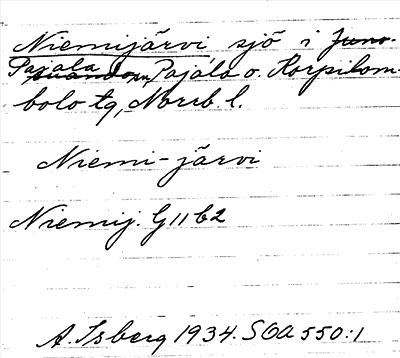 Niemijärvi sjö i
Pajala, Pajala o. Korpilom-
bolo tg, Norrb. l.
Niemi-järvi
Niemij. G11b2
A. Isberg 1934. SOA 550:1